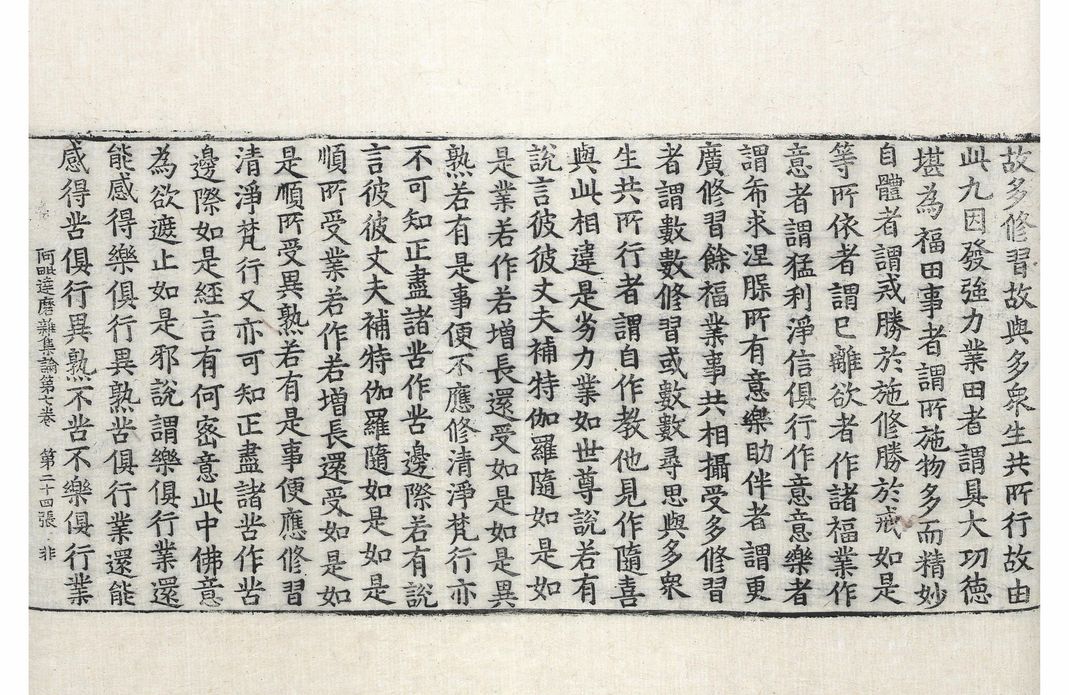 故多修習故與多衆生共所行故由
此九因發強力業田者謂具大功德
堪為福田事者謂所施物多而精妙
自體者謂戒勝於施修勝於戒如是
等所依者謂已離欲者作諸福業作
意者謂猛利淨信俱行作意意樂者
謂希求涅脲所有意樂助伴者謂更
廣修習餘福業事共相攝受多修習
者謂數數修習或數數尋思與多衆
生共所行者謂自作教他見作隨喜
與此相違是劣力業如世尊說若有
說言彼彼丈夫補特伽羅隨如是如
是業若作若增長還受如是如是異
熟若有是事便不應修清淨梵行亦
不可知正盡諸苦作苦邊際若有說
言彼彼丈夫補特伽羅隨如是如是
順所受業若作若增長還受如是如
是順所受異熟若有是事便應修習
清淨梵行又亦可知正盡諸苦作苦
邊際如是經言有何密意此中佛意
為欲遮止如是邪說謂樂俱行業還
能感得樂俱行異熟苦俱行業還能
感得苦俱行異熟不苦不樂俱行業
阿毗達磨雜集論第七卷 第二十四張 非